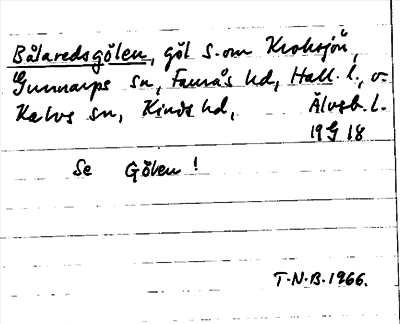 Bålaredsgölen, göl s.om Kroksjön,
Gunnarps sn, Faurås hd, Hall. l., o.
Kalvs sn, Kinds hd, Älvsb. l.
19 G 18
Se Gölen!
T.N.B. 1966.